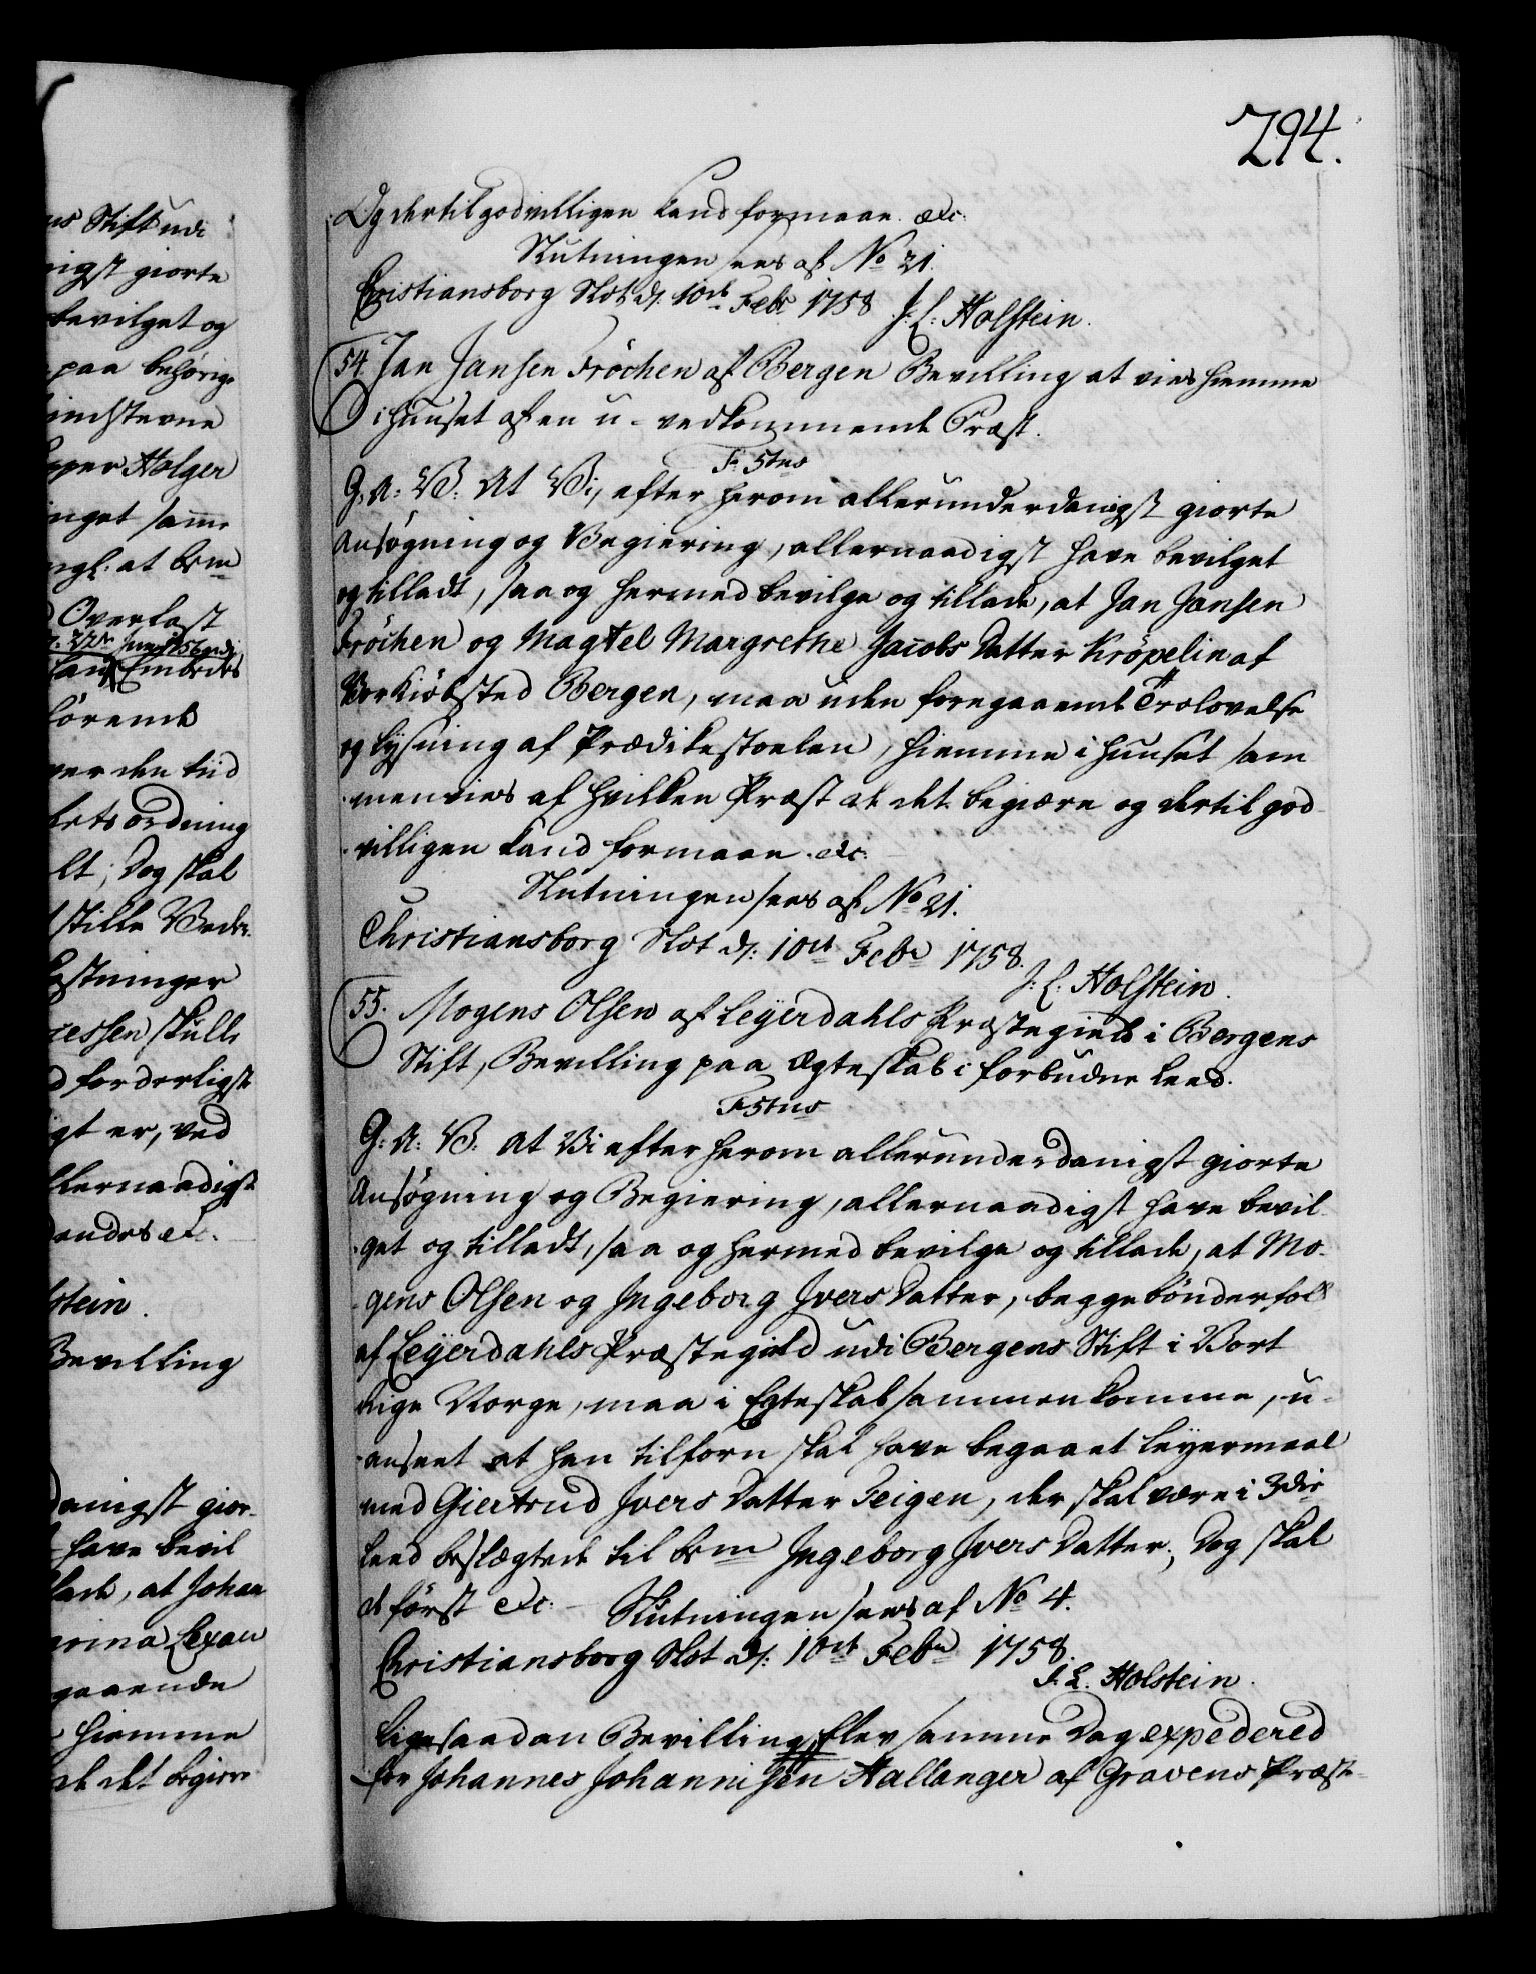 294.
Og dertil godvilligen kand formaae. etc.
Slutningen sees af No 21.
Christiansborg Slot d: 10de Febr 1758 J: L: Holstein.
54. Jan Jansen Fröchen af Bergen Bevilling at vies hiemme
i Huuset af en u-vedkommende Præst.
F: 5tus
G: A: V: At Vi, efter herom allerunderdanigst giorte
Ansøgning og Begiering, allernaadigst have bevilget
og tilladt, saa og hermed bevilge og tillade, at Jan Jansen
Fröchen og Magtel Margrethe Jacobs Datter Kröpelin af
Vor Kiøbsted Bergen, maa uden foregaaende Trolovelse
og Lysning af Prædikestoelen, hiemme i Huuset sam
menvies af hvilken Præst de det begiære og dertil god
villigen kand formaae. etc.
Slutningen sees af No 21.
Christiansborg Slot d: 10de Febr 1758.
J: L: Holstein.
55. Mogens Olsen af Leyerdahls Præstegield i Bergens
Stift, Bevilling paa Ægteskab i forbudne Leed.
F 5tus
G: A: V: At Vi efter herom allerunderdanigst giorte
Ansøgning og Begiering, allernaadigst have bevil
get og tilladt, saa og hermed bevilge og tillade, at Mo-
gens Olsen og Ingeborg Ivers Datter, begge bønderfolk
af Leyerdahls Præstegield udi Bergens Stift i Vort
Rige Norge, maa i Egteskab sammenkomme, u-
anseet at han tilforn skal have begaaet Leyermaal
med Giertrud Ivers Datter Feigen, der skal være i 3die
Leed beslægtede til bem Ingeborg Ivers Datter; Dog skal
de først etc. Slutningen sees af No 4.
Christiansborg Slot d: 10de Febr 1758.
J. L. Holstein.
Ligesaadan Bevilling blev samme Dag expedered
for Johannes Johannisen Hallanger af Gravens Præste-